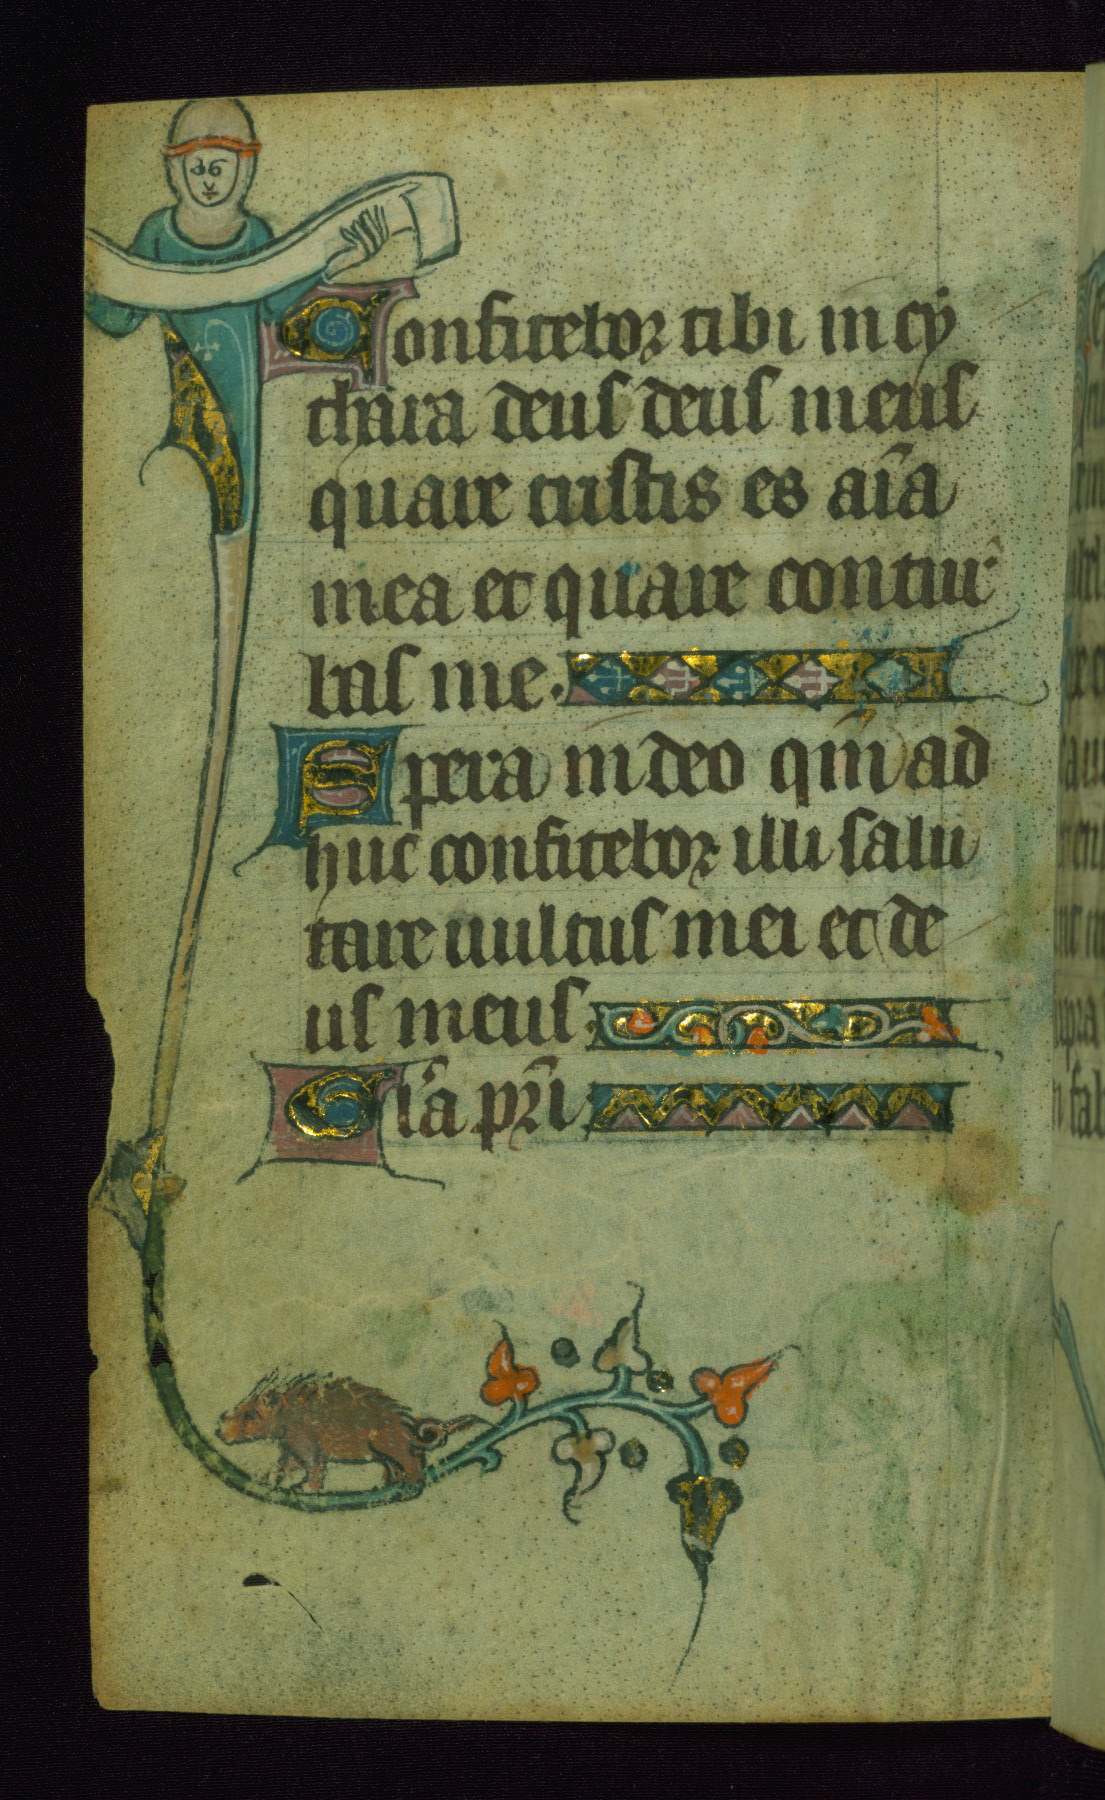 Confitebor tibi in cy
thara deus deus meus
quare tristis es aĩa
mea et quare contur
bas me.
Spera in deo qm̃ ad
huc confitebor illi salu
tare uultus mei et de
us meus.
Gl̃a pr̃i